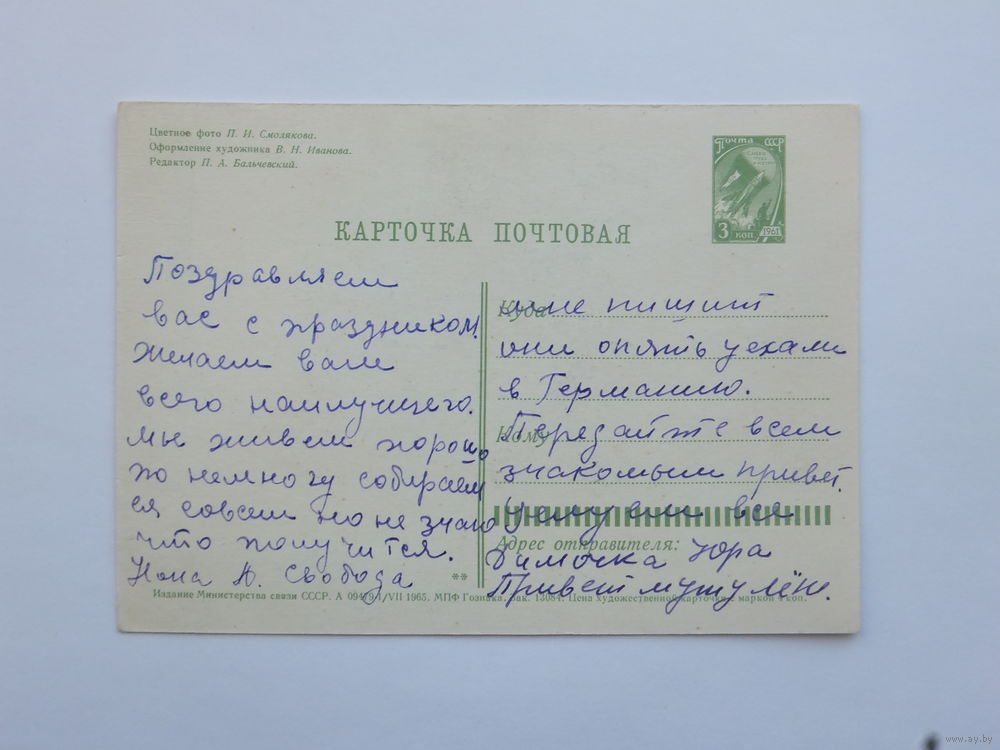 Цветное фото П. И. Смолякова.
Оформление художника В. Н. Иванова.
Редактор П. А. Бальчевский.
Почта СССР
3 коп. 1961
КАРТОЧКА ПОЧТОВАЯ
Поздравляем
вас с праздником.
Желаем вам
всего наилучшего.
мы живем хорошо
по немногу собираем
ся совсем но не знаю
что получится.
Нона А. Свобода
**
Куда
мне пишит
они опять уехали
в Германию.
Кому
Передайте всем
знакомым привет.
целуем все
Адрес отправителя:
Димочка Юра
Привет
Издание Министерства связи СССР. А 09449 1/VII 1965. МПФ Гознака. Зак. 13084. Цена художественной карточки с маркой 4 коп.
www.ay.by